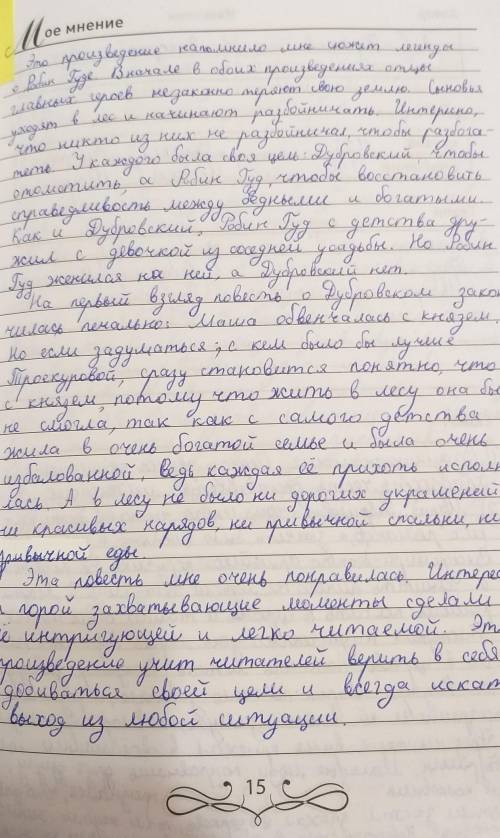 Мое мнение
Это произведение напомнило мне сюжет легенды
о Робин Гуде. Вначале в обоих произведениях отцы
главных героев незаконно теряют свою землю. Сыновья
уходят в лес и начинают разбойничать. Интерино,
что никто из них не разбойничал, чтобы разбога-
теть. У каждого была своя цель: Дубровский, чтобы
отомстить, а Робин Гуд, чтобы восстановить
справедливость между бедными и богатыми.
Как и Дубровский, Робин Гуд с детства дру-
жил с девочкой из соседней усадьбы. Но Робин
Гуд женился на ней, а Дубровский нет.
На первый взгляд повесть о Дубровском закон
чилась печально: Маша обвенчалась с князем,
Но если задуматься, с кем было бы лучше
Троекуровой, сразу становится понятно, что
с князем, потому что жить в лесу она бы
не смогла, так как с самого детства
жила в очень богатой семье и была очень
избалованной, ведь каждая её прихоть исполн
лась. А в лесу не было ни дорогих украшений
ни красивых нарядов, ни привычной спальни, ни
привычной еды.
Эта повесть мне очень понравилась. Интерес
порой захватывающие моменты сделали
её интригующей и легко читаемой. Эт
произведение учит читателей верить в себя
добиваться своей цели и всегда искат
выход из любой ситуации.
15